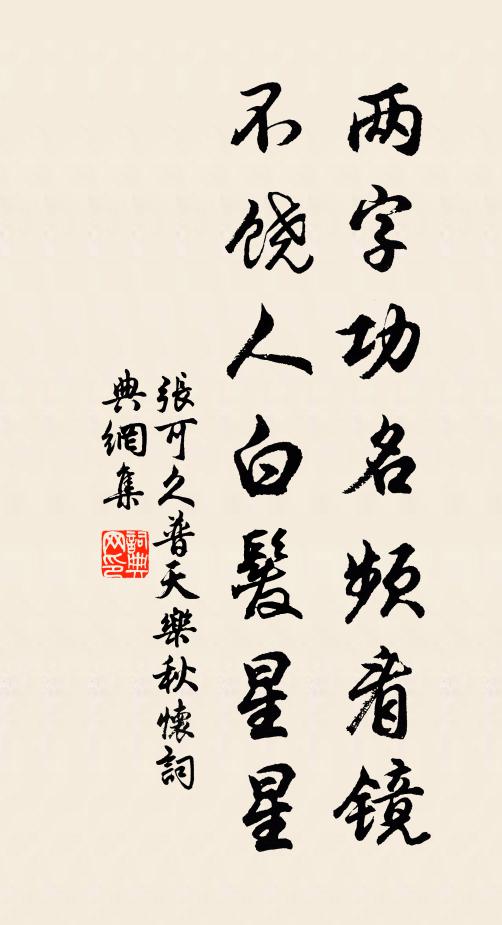 两字功名频看镜
不饶人白髮星星
張可久普天樂秋懷詞
典網集
詞典网印